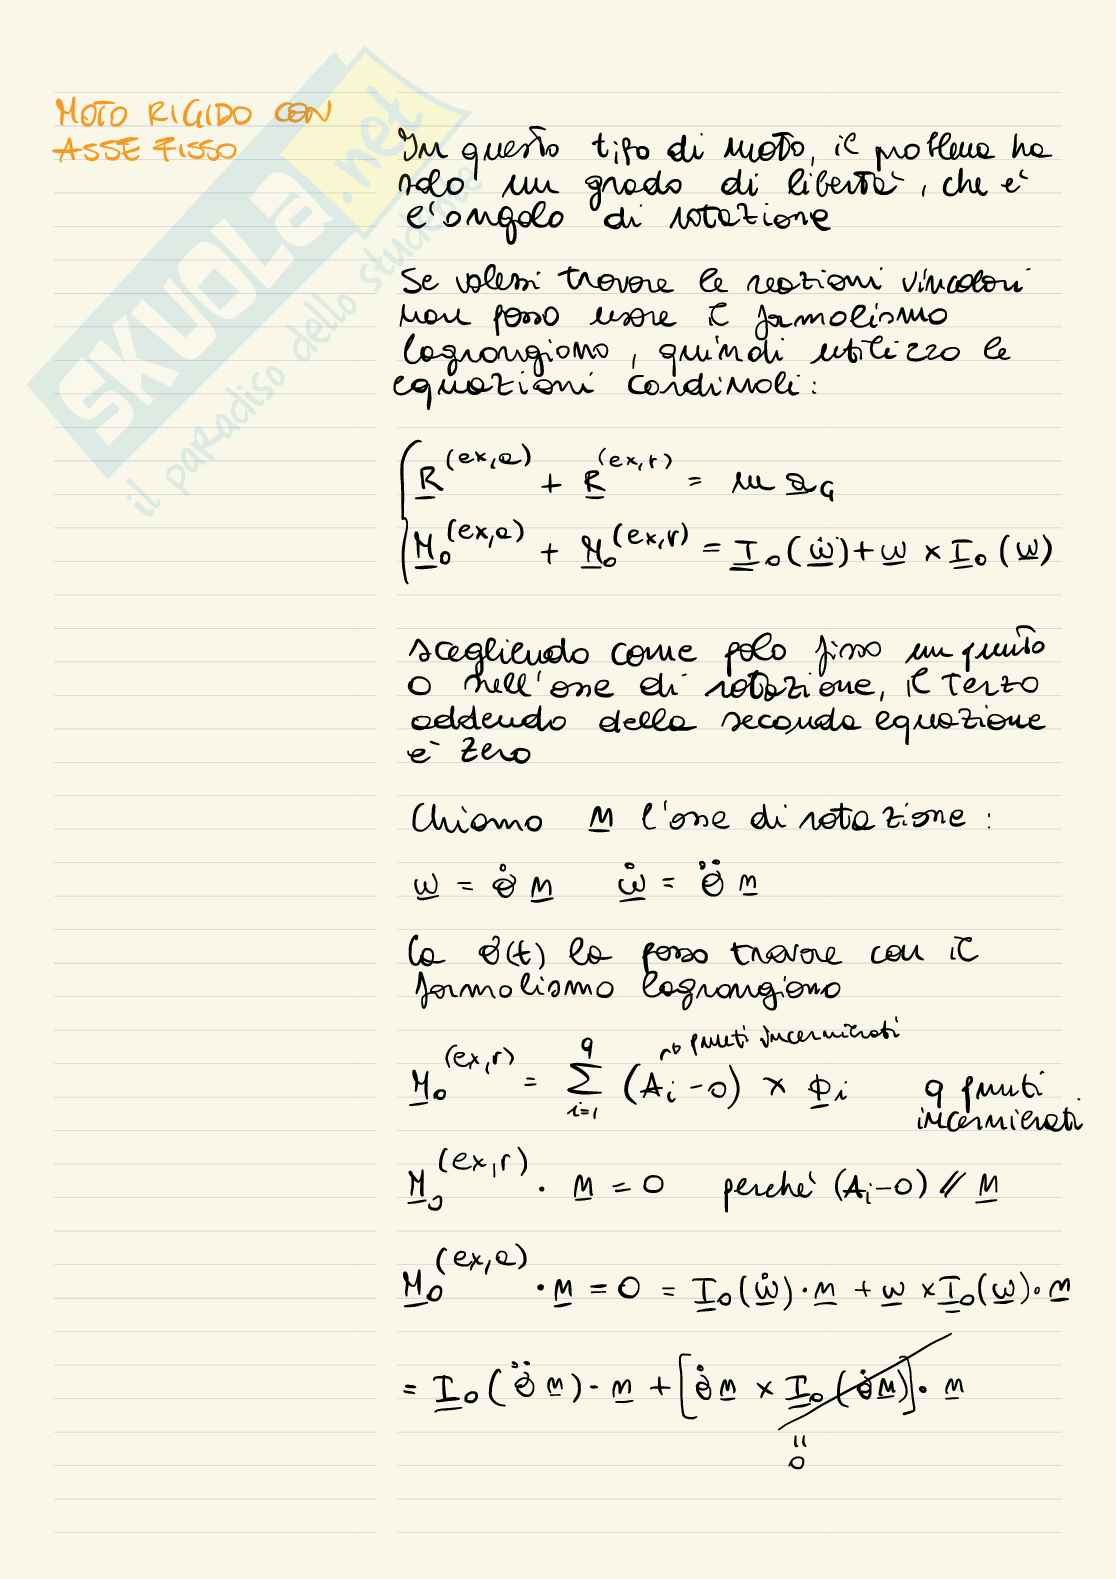 MOTO RIGIDO CON
ASSE FISSO
In questo tipo di moto, il problema ha
solo un grado di libertà, che è
l'angolo di rotazione
Se volessi trovare le reazioni vincolari
non posso usare il formalismo
lagrangiano, quindi utilizzo le
equazioni cardinali:
R^(ex,a) + R^(ex,r) = m a_G
M_O^(ex,a) + M_O^(ex,r) = I_O(ω̇) + ω × I_O(ω)
scegliendo come polo fisso un punto
O nell'asse di rotazione, il terzo
addendo della seconda equazione
è zero
Chiamo n l'asse di rotazione:
ω = θ̇ n   ω̇ = θ̈ n
la θ(t) la posso trovare con il
formalismo lagrangiano
→ punti incernierati
M_O^(ex,r) = Σ_{i=1}^{q} (A_i - O) × Φ_i   q punti
incernierati
M_O^(ex,r) · n = 0   perché (A_i - O) // n
M_O^(ex,a) · n = 0 = I_O(ω̇) · n + ω × I_O(ω) · n
= I_O(θ̈ n) · n + [θ̇ n × I_O(θ̇ n)] · n
=
0
SKUOLA.net
il paradiso dello studente